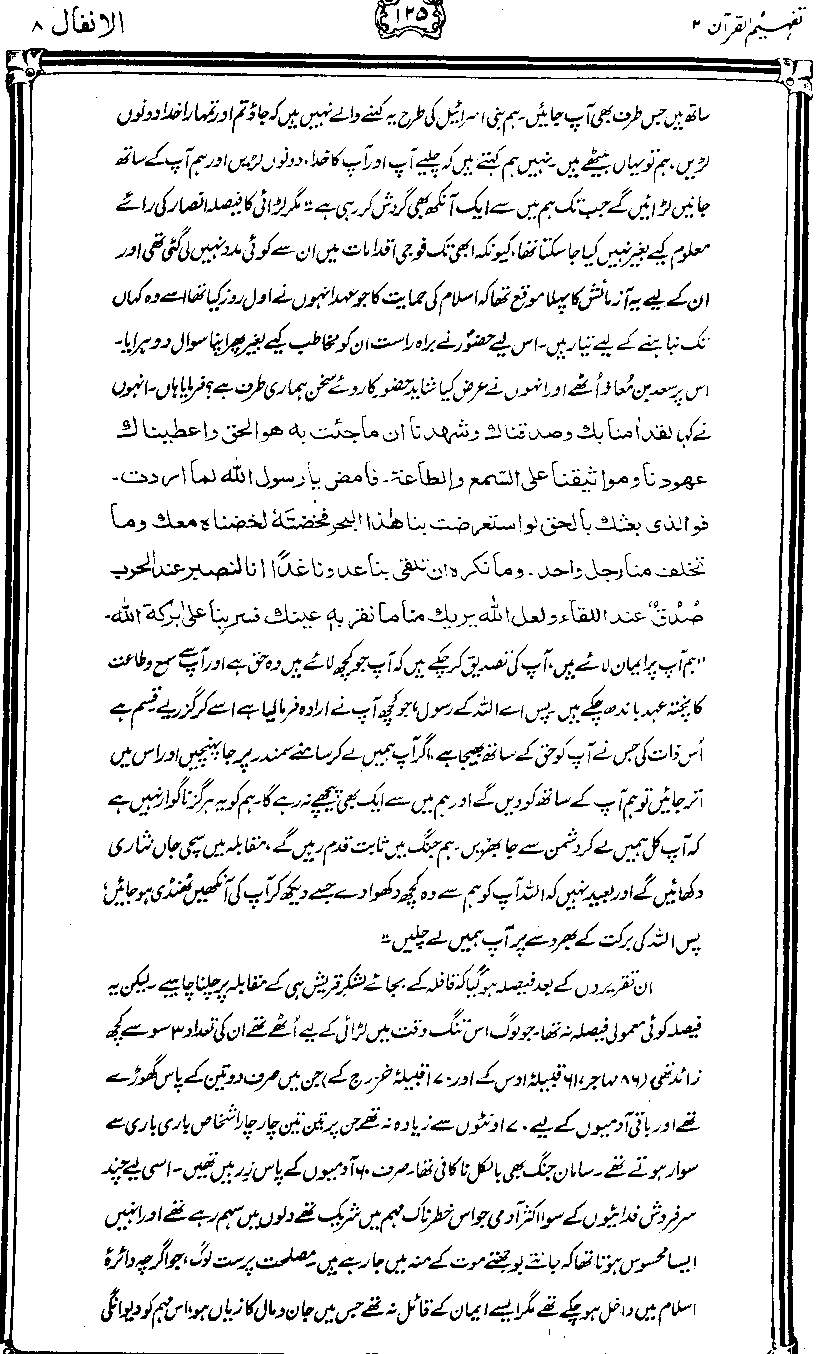 تفہیم القرآن ۲
۱۲۵
الانفال ۸
ساتھ ہیں جس طرف بھی آپ جائیں۔ ہم بنی اسرائیل کی طرح یہ کہنے والے نہیں ہیں کہ جاؤ تم اور تمہارا خدا دونوں
لڑیں، ہم تو یہاں بیٹھے ہیں۔ نہیں ہم کہتے ہیں کہ چلیے آپ اور آپ کا خدا، دونوں لڑیں اور ہم آپ کے ساتھ
جانیں لڑائیں گے جب تک ہم میں سے ایک آنکھ بھی گردش کر رہی ہے“۔ مگر لڑائی کا فیصلہ انصار کی رائے
معلوم کیے بغیر نہیں کیا جا سکتا تھا، کیونکہ ابھی تک فوجی اقدامات میں ان سے کوئی مدد نہیں لی گئی تھی اور
ان کے لیے یہ آزمائش کا پہلا موقع تھا کہ اسلام کی حمایت کا جو عہد انہوں نے اول روز کیا تھا اسے وہ کہاں
تک نباہنے کے لیے تیار ہیں۔ اس لیے حضورؐ نے براہ راست ان کو مخاطب کیے بغیر پھر اپنا سوال دوہرایا۔
اس پر سعد بن معاذ اُٹھے اور انہوں نے عرض کیا شاید حضور کا روئے سخن ہماری طرف ہے؟ فرمایا ہاں۔ انہوں
نے کہا لقد اٰمنا بك وصدقناك وشهدنا ان ما جئت به هو الحق واعطيناك
عهودنا ومواثيقنا على السّمع والطاعة۔ فامض يا رسول الله لما اردت۔
فوالذى بعثك بالحق لو استعرضت بنا هٰذا البحر فخضتهٗ لخضناه معك وما
تخلف منا رجل واحد۔ وما نكره ان تلقى بنا عدونا غدًا انا لنصبر عند الحرب
صُدُقٌ عند اللقاء ولعل الله يريك منا ما تقر به عينك فسر بنا على بركة الله۔
”ہم آپ پر ایمان لائے ہیں، آپ کی تصدیق کر چکے ہیں کہ آپ جو کچھ لائے ہیں وہ حق ہے اور آپ سے سمع و طاعت
کا پختہ عہد باندھ چکے ہیں۔ پس اے اللہ کے رسول، جو کچھ آپ نے ارادہ فرما لیا ہے اسے کر گزریے۔ قسم ہے
اُس ذات کی جس نے آپ کو حق کے ساتھ بھیجا ہے، اگر آپ ہمیں لے کر سامنے سمندر پر جا پہنچیں اور اس میں
اتر جائیں تو ہم آپ کے ساتھ کودیں گے اور ہم میں سے ایک بھی پیچھے نہ رہے گا۔ ہم کو یہ ہرگز ناگوار نہیں ہے
کہ آپ کل ہمیں لے کر دشمن سے جا بھڑیں۔ ہم جنگ میں ثابت قدم رہیں گے، مقابلہ میں سچی جاں نثاری
دکھائیں گے اور بعید نہیں کہ اللہ آپ کو ہم سے وہ کچھ دکھوا دے جسے دیکھ کر آپ کی آنکھیں ٹھنڈی ہو جائیں،
پس اللہ کی برکت کے بھروسے پر آپ ہمیں لے چلیں“۔
ان تقریروں کے بعد فیصلہ ہو گیا کہ قافلہ کے بجائے لشکر قریش ہی کے مقابلہ پر چلنا چاہیے۔ لیکن یہ
فیصلہ کوئی معمولی فیصلہ نہ تھا۔ جو لوگ اس تنگ وقت میں لڑائی کے لیے اُٹھے تھے ان کی تعداد ۳ سو سے کچھ
زائد تھی (۸۶ مہاجر، ۶۱ قبیلۂ اوس کے اور ۱۷۰ قبیلۂ خزرج کے) جن میں صرف دو تین کے پاس گھوڑے
تھے اور باقی آدمیوں کے لیے ۷۰ اونٹوں سے زیادہ نہ تھے جن پر تین تین چار چار اشخاص باری باری سے
سوار ہوتے تھے۔ سامان جنگ بھی بالکل ناکافی تھا۔ صرف ۶۰ آدمیوں کے پاس زرہیں تھیں۔ اسی لیے چند
سرفروش فدائیوں کے سوا اکثر آدمی جو اس خطرناک مہم میں شریک تھے دلوں میں سہم رہے تھے اور انہیں
ایسا محسوس ہوتا تھا کہ جانتے بوجھتے موت کے منہ میں جا رہے ہیں۔ مصلحت پرست لوگ، جو اگرچہ دائرۂ
اسلام میں داخل ہو چکے تھے مگر ایسے ایمان کے قائل نہ تھے جس میں جان و مال کا زیاں ہو، اس مہم کو دیوانگی